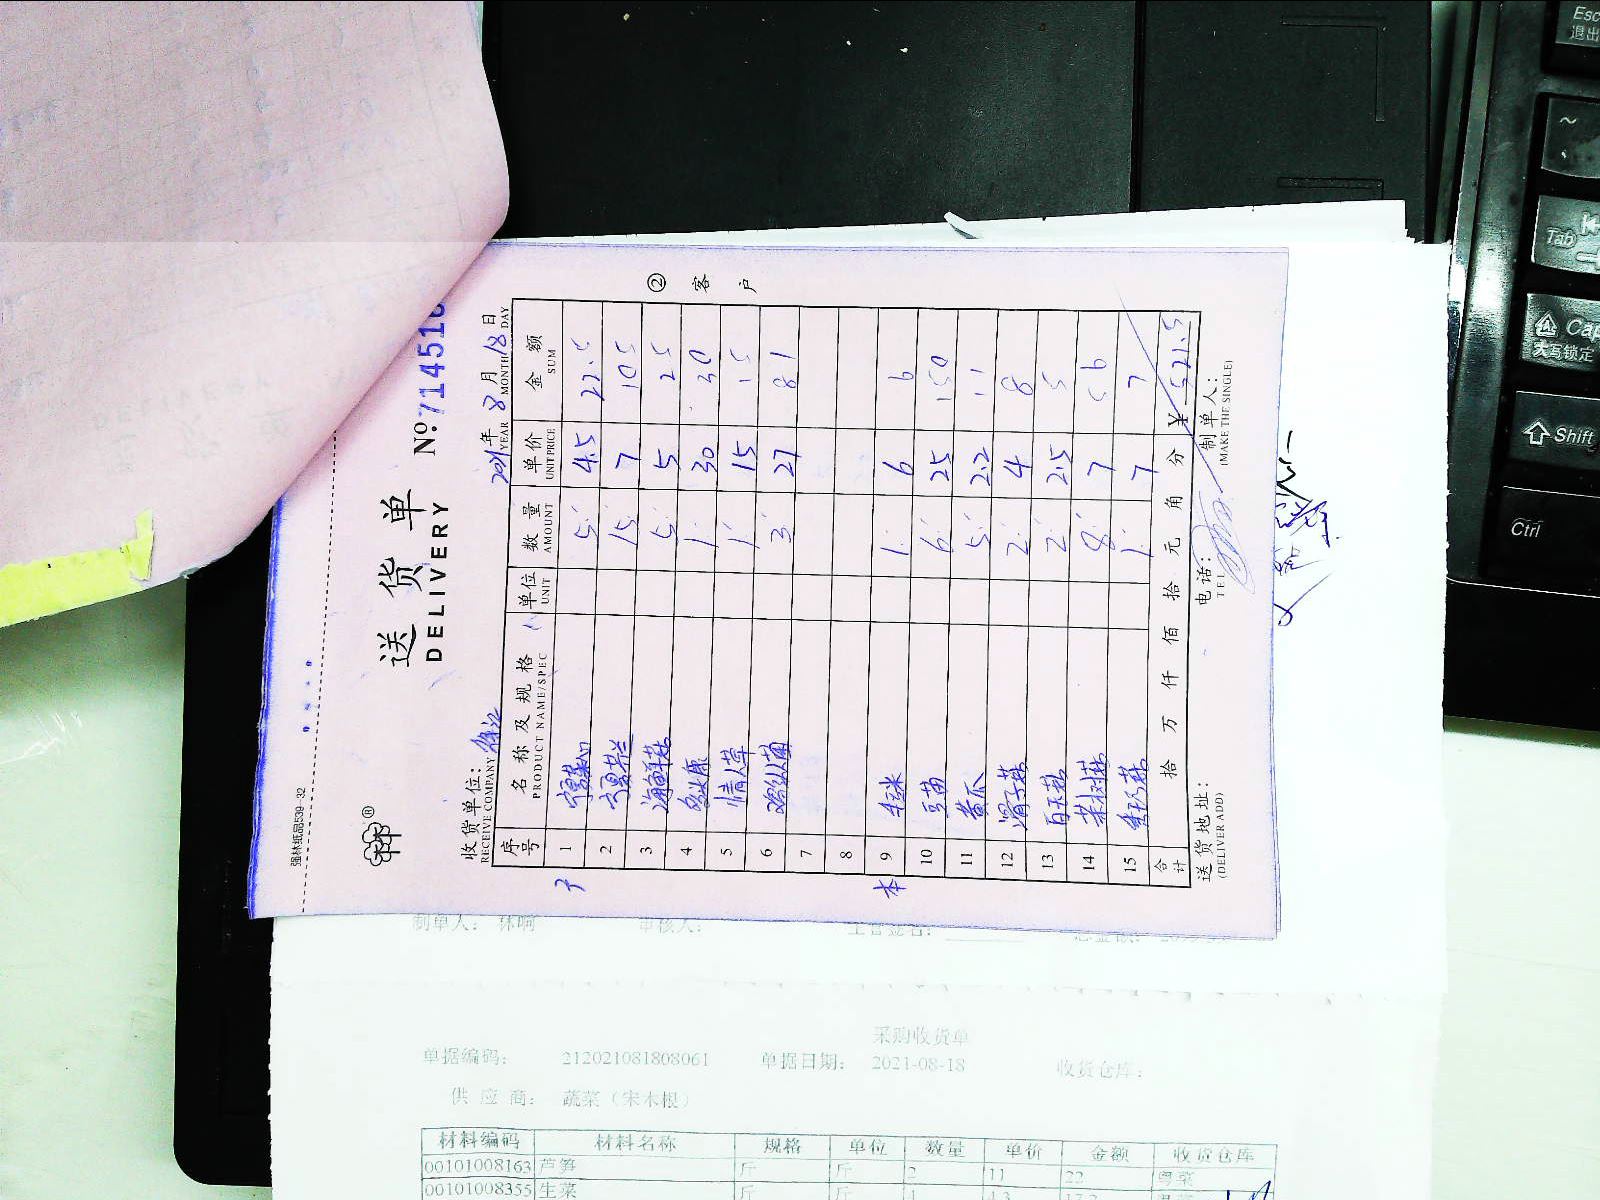 强林纸品539-32
送货单
DELIVERY
№ 714516
收货单位:
RECEIVE COMPANY
2021年 8月 18日
YEAR MONTH DAY
② 客户
序号 名称及规格 单位 数量 单价 金额
PRODUCT NAME/SPEC UNIT AMOUNT UNIT PRICE SUM
1 宁夏菜心 5 4.5 22.5
2 宁夏芥兰 15 7 105
3 海鲜菇 5 5 25
4 1 30 30
5 1 15 15
6 3 27 81
7
8
9 1 6 6
10 豆苗 6 25 150
11 黄瓜 5 2.2 11
12 滑子菇 2 4 8
13 白玉菇 2 2.5 5
14 茶树菇 8 7 56
15 1 7 7
合计 拾 万 仟 佰 拾 元 角 分 ¥ 521.5
送货地址: 电话: 制单人:
(DELIVER ADD) TEL (MAKE THE SINGLE)
制单人: 审核人: 主管签名:
采购收货单
单据编码: 212021081808061 单据日期: 2021-08-18 收货仓库:
供应商: 蔬菜（宋木根）
材料编码 材料名称 规格 单位 数量 单价 金额 收货仓库
00101008163 芦笋 斤 斤 2 11 22 粤菜
00101008355 生菜 斤 斤 4.3 17.2
Esc
退出
~
Tab
Cap
大写锁定
Shift
Ctrl